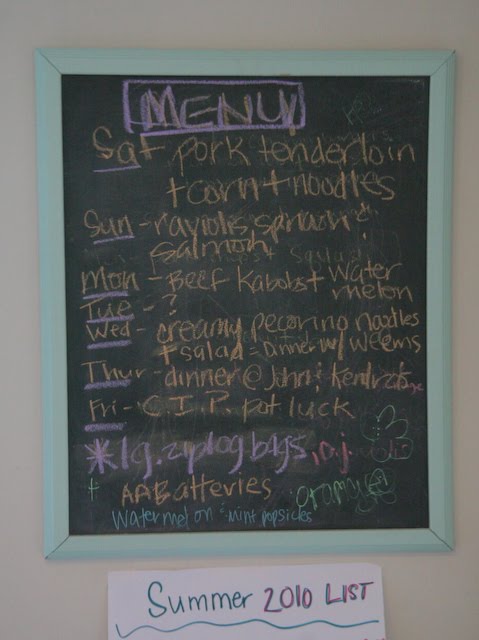 MENU
Sat pork tenderloin
+ corn + noodles
Sun - raviolis, spinach &
salmon
Mon - Beef Kabobs + Water
melon
Tue - ?
Wed - creamy pecorino noodles
+ salad = Dinner w/ weems
Thur - dinner @ John & Kendra's
Fri - C.I.P. pot luck
*lg. ziplog bags, o.j.
+ AABatteries orange
Watermelon "Mint popsicles
Summer 2010 LIST